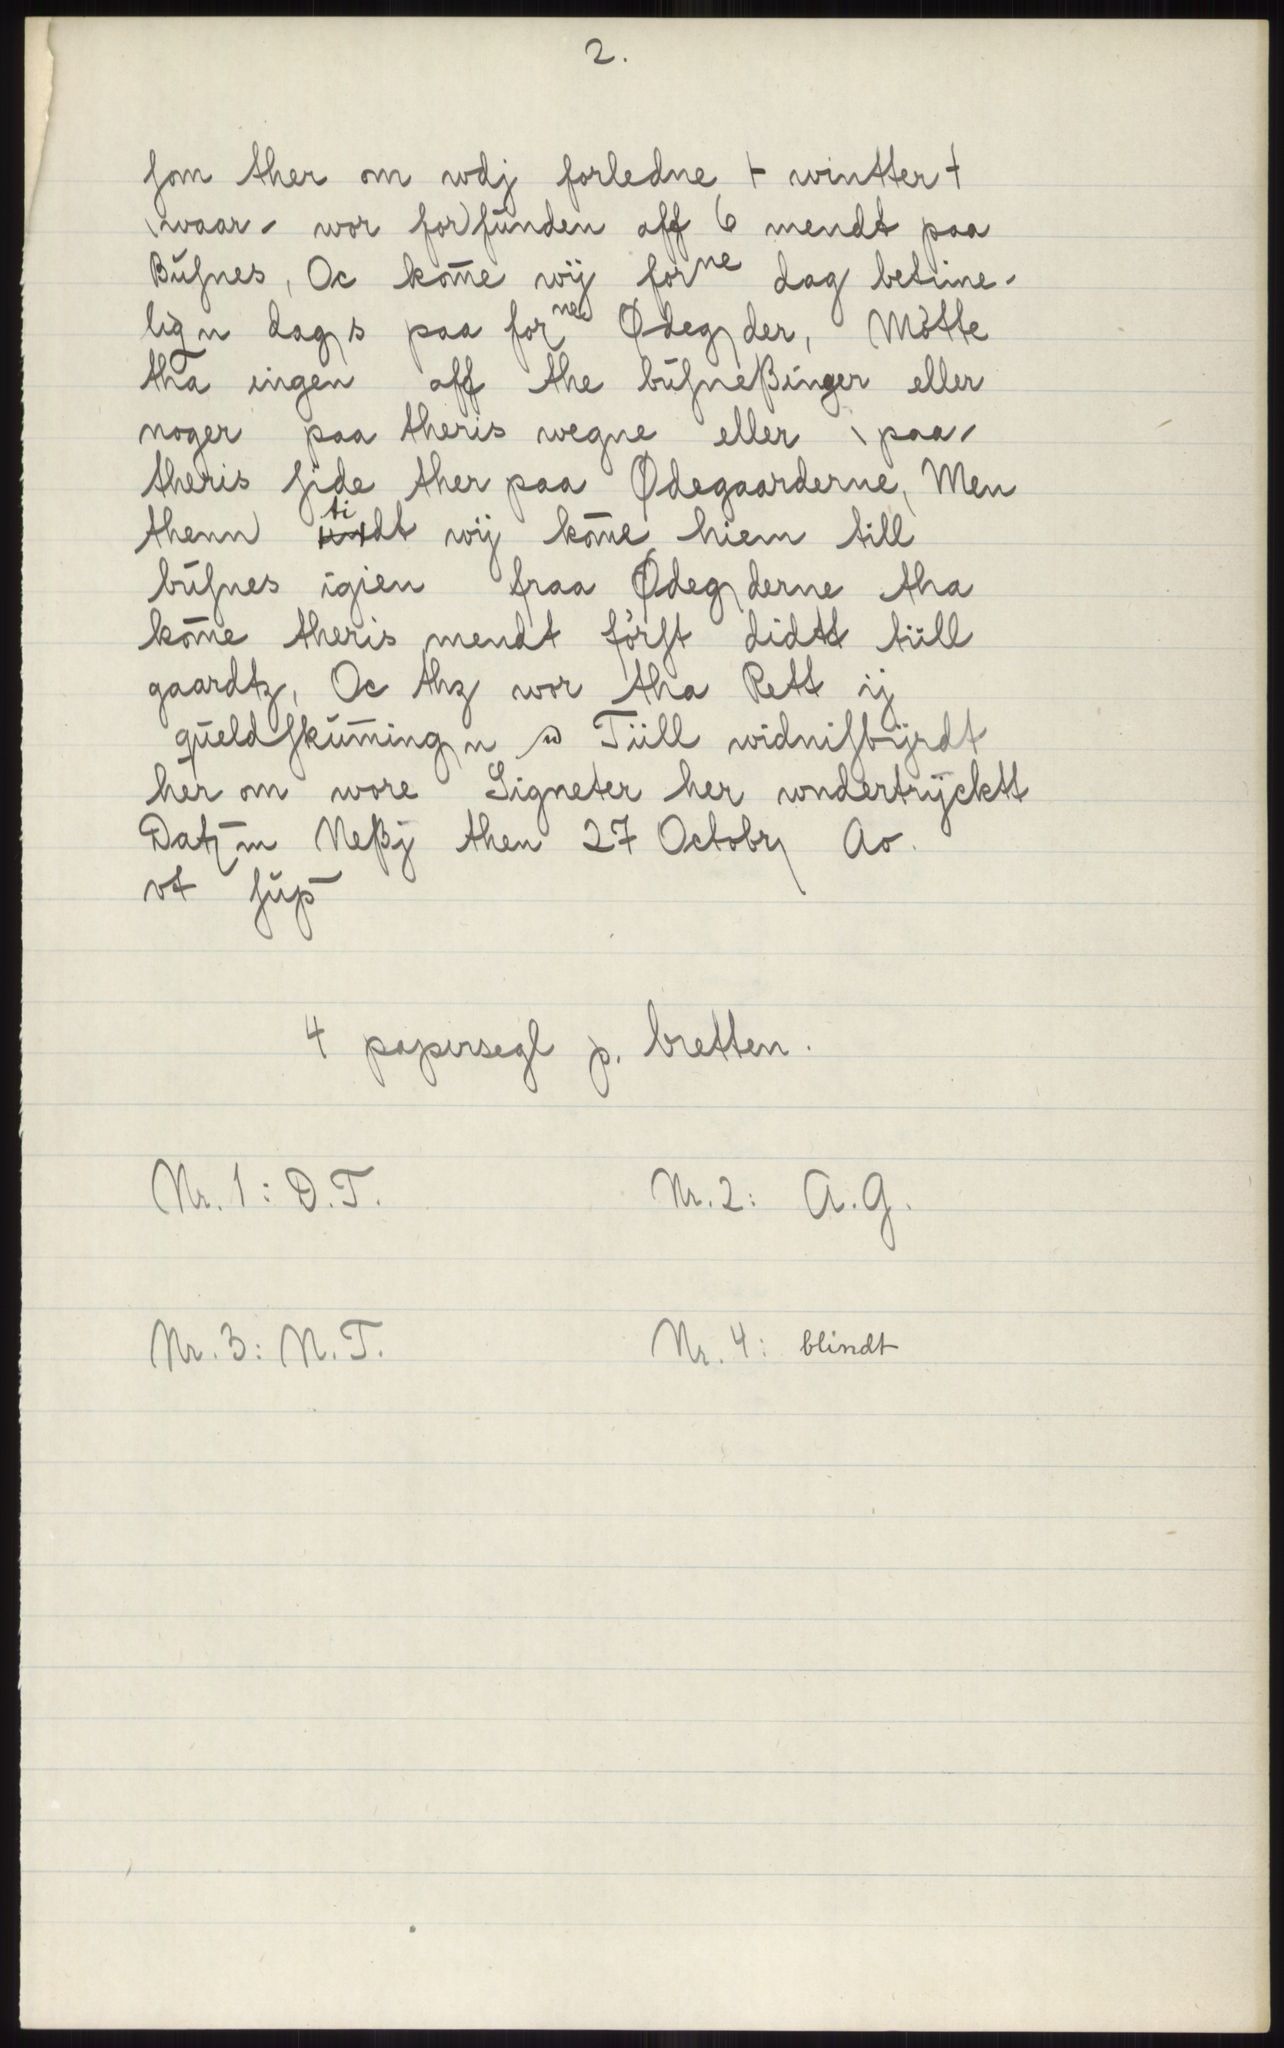 2.
ſom ther om wdj forledne ⊢ wintter +
\waar⸝ wor forſunden aff 6 mendt paa
Buſnes, Oc kom̅e wÿ forne dag betime-
lign dags paa forne Ødegder, Mötte
tha ingen aff the buſneßinger eller
noger paa theris wegne eller \paa⸝
theris ſide ther paa Ødegaarderne, Men
thenn tidt wÿ kom̅e hiem till
buſnes igien fraa Ødegderne tha
kom̅e theris mendt förſt didtt tiill
gaardtz, Oc thz wor tha Rett ij
queldſkum̅ingn Tiill widniſbÿrdt
her om wore Signeter her wndertrÿcktt
Datum Neßÿ then 27 Octobr Ao.
vt ſup̅
4 papirsegl p. bretten.
Nr. 1: D.T. Nr. 2: A.G.
Nr. 3: N.T. Nr. 4: blindt